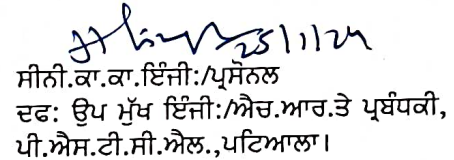 25/1/24
ਸੀਨੀ.ਕਾ.ਕਾ.ਇੰਜੀ:/ਪ੍ਰਸੋਨਲ
ਦਫ: ਉਪ ਮੁੱਖ ਇੰਜੀ:/ਐਚ.ਆਰ.ਤੇ ਪ੍ਰਬੰਧਕੀ,
ਪੀ.ਐਸ.ਟੀ.ਸੀ.ਐਲ.,ਪਟਿਆਲਾ।